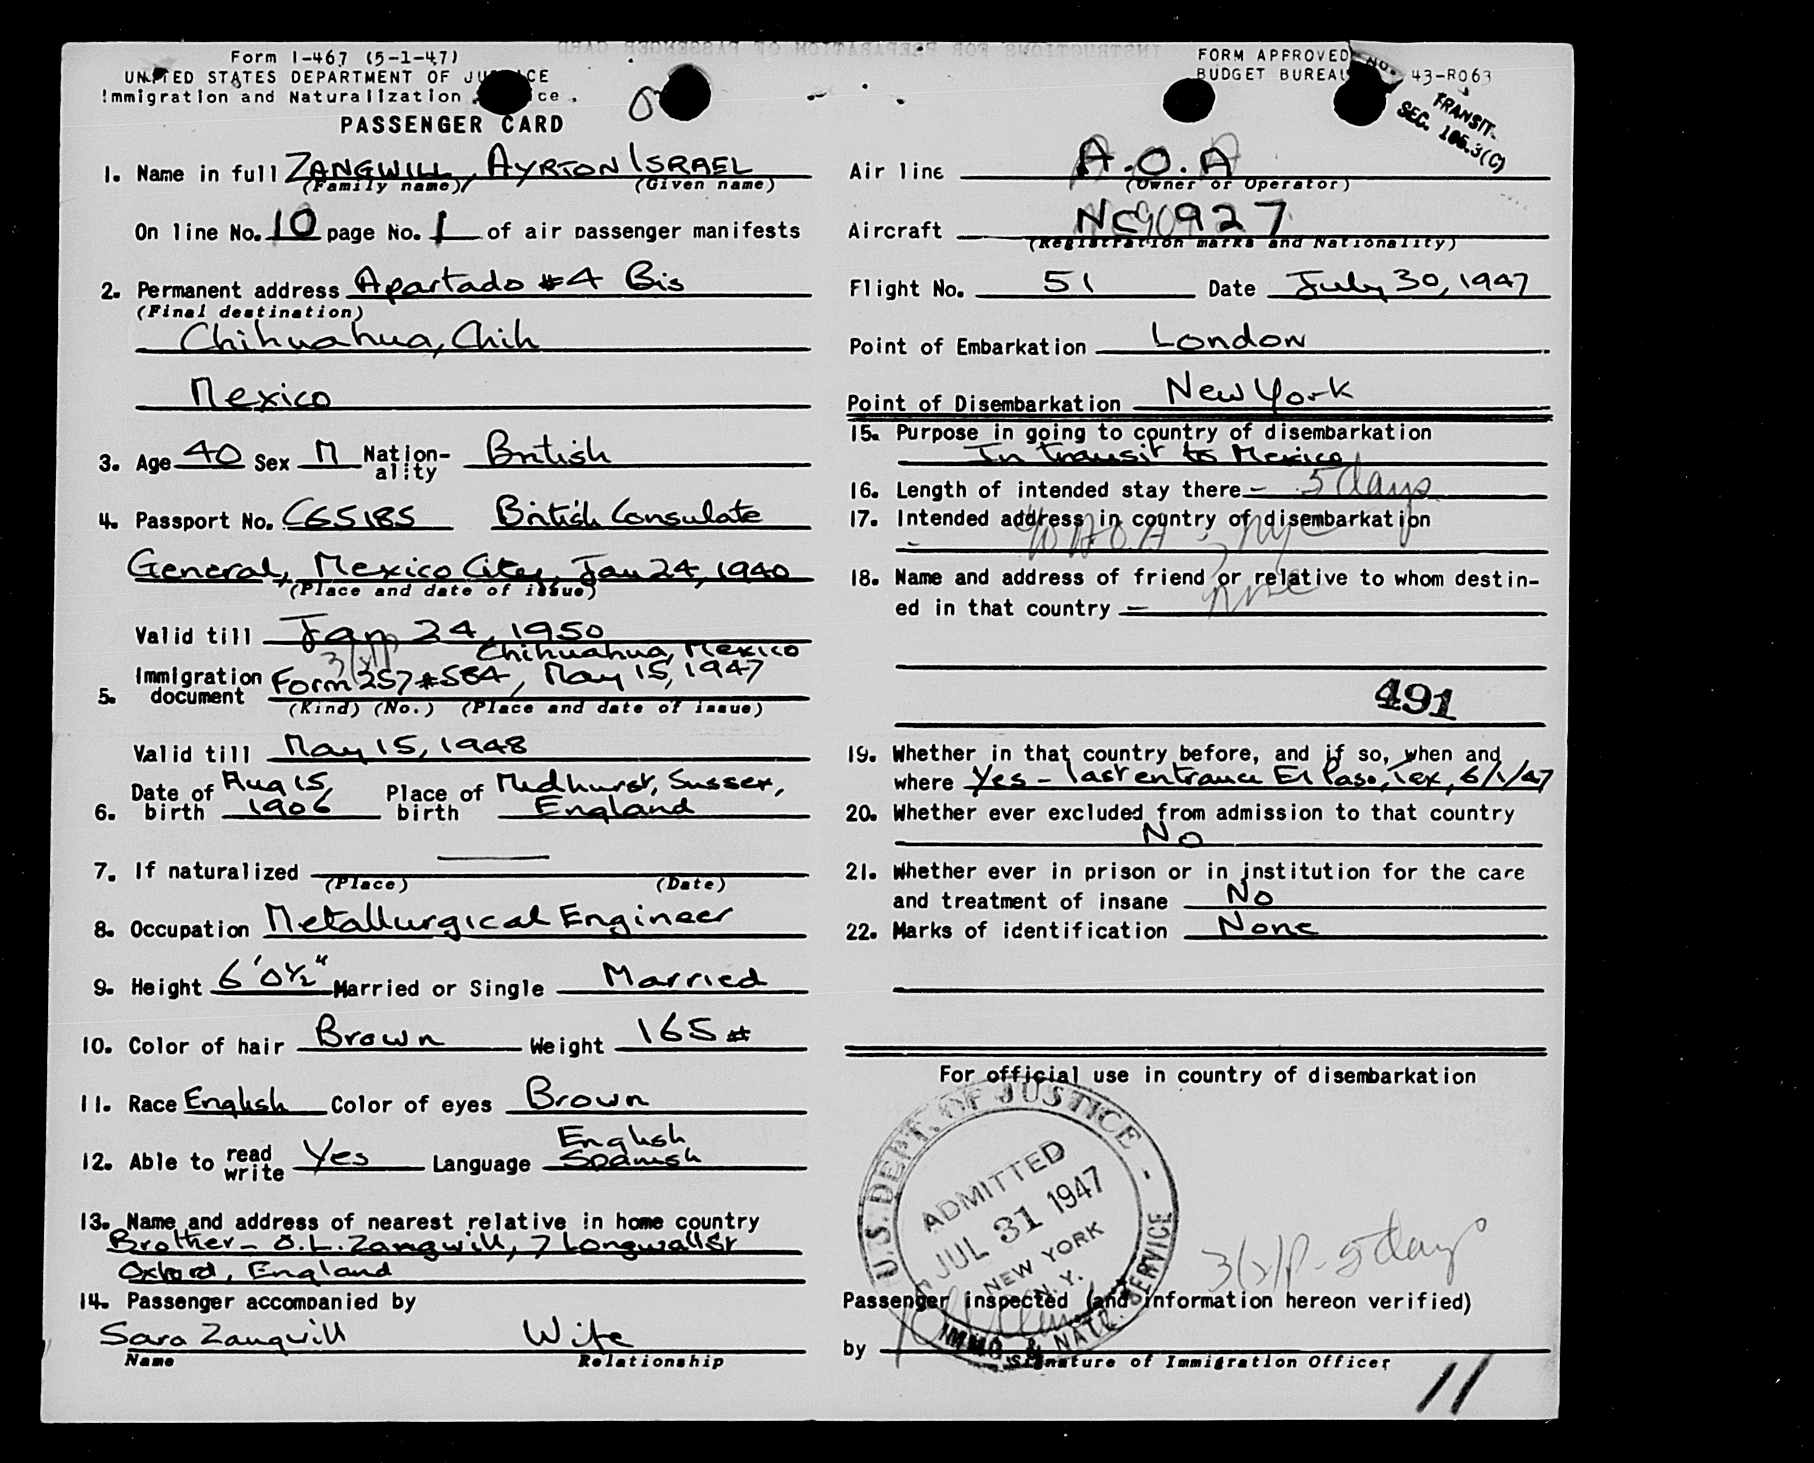 Form I-467 (5-1-47)
UNITED STATES DEPARTMENT OF JUSTICE
Immigration and Naturalization Service
PASSENGER CARD
1. Name in full ZANGWILL, AYRTON ISRAEL
(Family name) (Given name)
On line No. 10 page No. 1 of air passenger manifests
2. Permanent address Apartado #4 Bis
(Final destination)
Chihuahua, Chih
Mexico
3. Age 40 Sex M Nation-ality British
4. Passport No. C65185 British Consulate
General, Mexico City, Jan 24, 1940
(Place and date of issue)
Valid till Jan 24, 1950
Chihuahua, Mexico
5. Immigration document Form 257 #584, May 15, 1947
(Kind) (No.) (Place and date of issue)
Valid till May 15, 1948
6. Date of birth Aug 15, 1906 Place of birth Midhurst, Sussex, England
7. If naturalized
(Place) (Date)
8. Occupation Metallurgical Engineer
9. Height 6'0½" Married or Single Married
10. Color of hair Brown Weight 165#
11. Race English Color of eyes Brown
12. Able to read write Yes Language English Spanish
13. Name and address of nearest relative in home country
Brother - O.L. Zangwill, 7 Longwall St
Oxford, England
14. Passenger accompanied by
Sara Zangwill Wife
Name Relationship
FORM APPROVED
BUDGET BUREAU NO. 43-R063
TRANSIT.
SEC. 106.3(C)
Air line A.O.A
(Owner or Operator)
Aircraft NC90927
(Registration marks and Nationality)
Flight No. 51 Date July 30, 1947
Point of Embarkation London
Point of Disembarkation New York
15. Purpose in going to country of disembarkation
In transit to Mexico
16. Length of intended stay there - 5 days
17. Intended address in country of disembarkation
% A.O.A. NYC
18. Name and address of friend or relative to whom destin-
ed in that country - None
491
19. Whether in that country before, and if so, when and
where Yes - last entrance El Paso, Tex, 6/1/47
20. Whether ever excluded from admission to that country
No
21. Whether ever in prison or in institution for the care
and treatment of insane No
22. Marks of identification None
For official use in country of disembarkation
U.S. DEPT. OF JUSTICE - IMMG. & NATZ. SERVICE
ADMITTED
JUL 31 1947
NEW YORK
N.Y.
5 days
Passenger inspected (and information hereon verified)
by
Signature of Immigration Officer
11